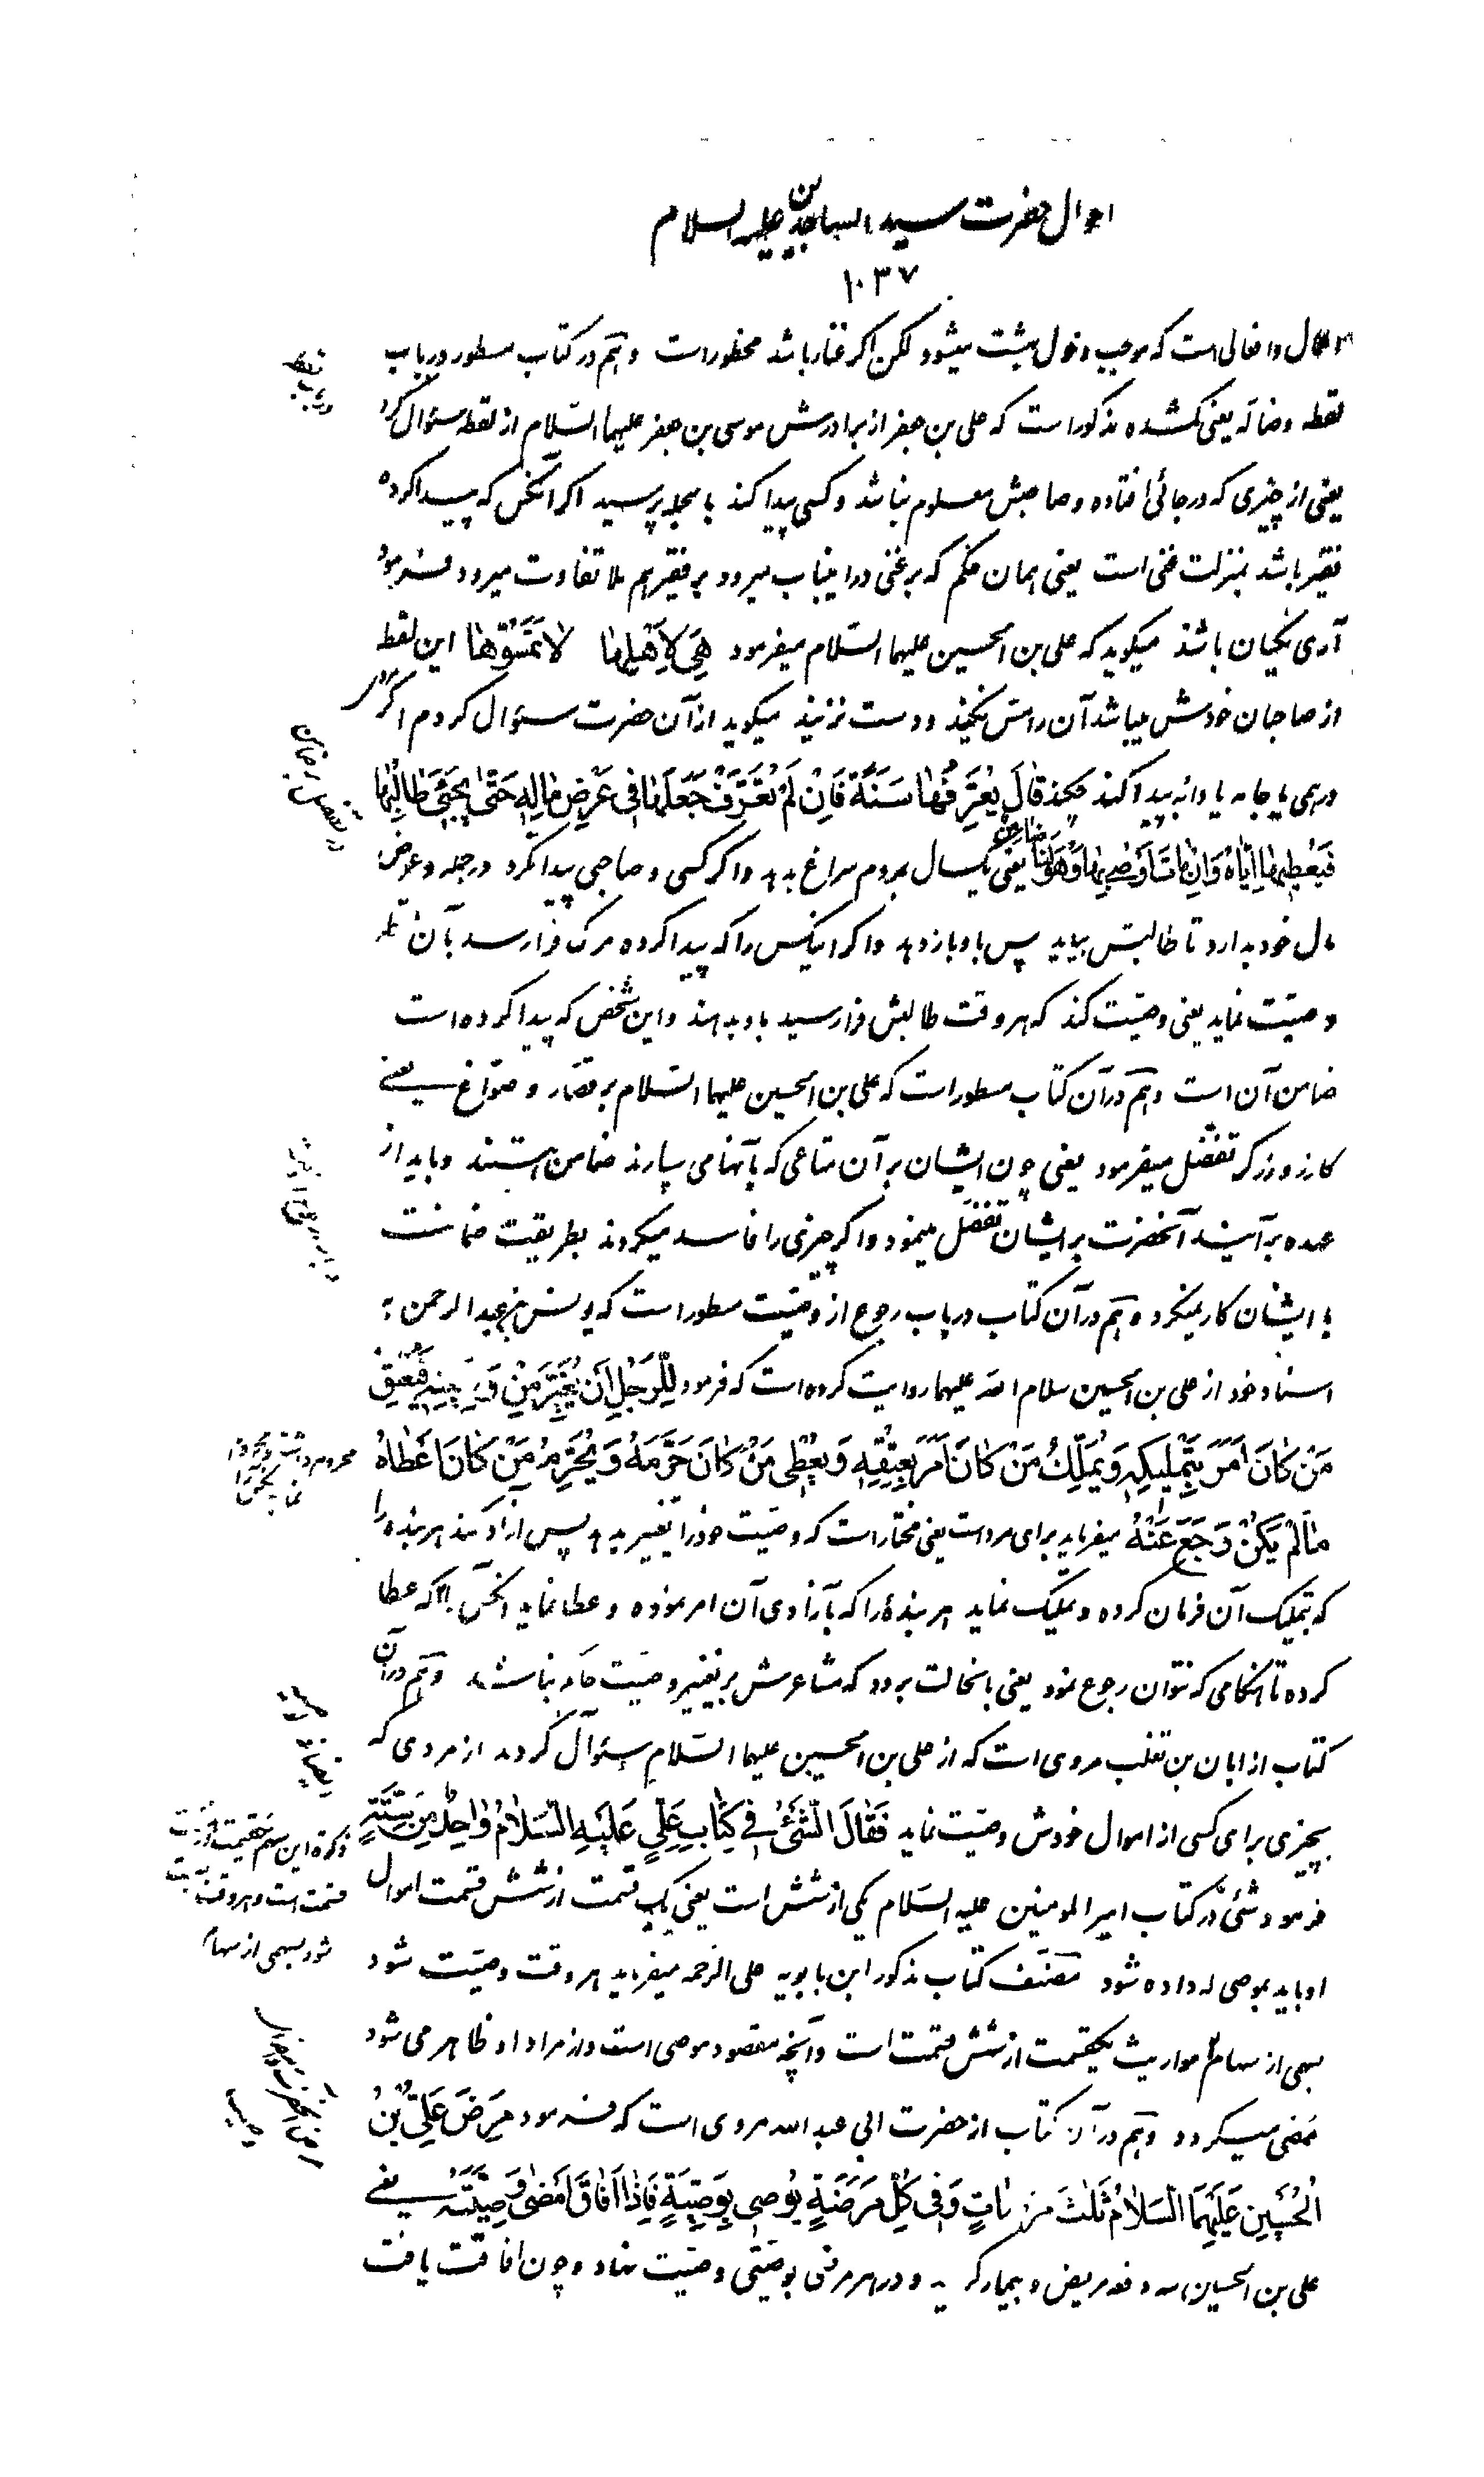 احوال حضرت سید الساجدین علیه السلام
۱۰۳۷
و افعالی است که موجب دخول بهشت میشود لکن اگر غنا باشد محظور است و هم در کتاب مسطور در باب
لقطه و ضاله یعنی گمشده مذکور است که علی بن جعفر از برادرش موسی بن جعفر علیهما السّلام از لقطه سئوال کرد
یعنی از چیزی که در جائی افتاده و صاحبش معلوم نباشد و کسی پیدا کند بالجمله پرسید اگر آنکس که پیدا کرده
فقیر باشد بمنزلت غنی است یعنی همان حکم که بر غنی در اینباب میرود بر فقیر هم بلا تفاوت میرود فرمود
آری یکسان باشند میگوید که علی بن الحسین علیهما السّلام میفرمود هِیَ لِاَهْلِها لا تَمَسُّوها این لقطه
از صاحبان خودش میباشد آن را مسّ نکنید و دست نزنید میگوید از آن حضرت سئوال کردم اگر مردی
درهمی یا جامه یا دابّه پیدا کند چکند قالَ یُعَرِّفُها سَنَةً فَاِنْ لَمْ تُعَرَّفْ جَعَلَها فی عَرْضِ مالِهِ حَتّیٰ یَجیئَ طالِبُها
فَیُعْطیها اِیّاهُ وَاِنْ ماتَ اَوْصیٰ بِها وَهُوَ لَها ضامِنٌ یعنی یکسال بمردم سراغ بدهد و اگر کسی و صاحبی پیدا نکرد در جمله و عرض
مال خود بدارد تا طالبش بیاید پس باو باز دهد و اگر اینکس را که پیدا کرده مرگ فرا رسد بآن
وصیّت نماید یعنی وصیّت کند که هر وقت طالبش فرا رسید باو بدهند و این شخص که پیدا کرده است
ضامن آن است و هم در آن کتاب مسطور است که علی بن الحسین علیهما السّلام بر قصّار و صوّاغ یعنی
گازر و زرگر تفضّل میفرمود یعنی چون ایشان بر آن متاعی که بآنها می سپارند ضامن هستند و باید از
عهده برآیند آنحضرت بر ایشان تفضّل مینمود و اگر چیزی را فاسد میکردند بطریقت ضمانت
با ایشان کار نمیکرد و هم در آن کتاب در باب رجوع از وصیّت مسطور است که یونس بن عبد الرحمن به
اسناد خود از علی بن الحسین سلام الله علیهما روایت کرده است که فرمود لِلرَّجُلِ اَن یُغَیِّرَ مِنْ وَصِیَّتِهِ فَیُعْتِقُ
مَنْ کانَ اَمَرَ بِتَمْلیکِهِ وَیُمَلِّکُ مَنْ کانَ اَمَرَ بِعِتْقِهِ وَ یُعْطی مَنْ کانَ حَرَّمَهُ وَ یُحَرِّمُ مَنْ کانَ اَعْطاهُ
ما لَمْ یَکُنْ رَجَعَ عَنْهُ میفرماید برای مرد است یعنی مختار است که وصیّت خود را تغییر بدهد پس آزاد کند هر بنده را
که بتملیک آن فرمان کرده و تملیک نماید هر بندهٔ را که بآزادی آن امر نموده و عطا نماید آنکس را که عطا
کرده تا هنگامی که نتوان رجوع نمود یعنی بانحالت برود که مشاعرش بر تغییر وصیّت نباشد و هم در آن
کتاب از ابان بن تغلب مروی است که از علی بن الحسین علیهما السّلام سئوال کردند از مردی که
بچیزی برای کسی از اموال خودش وصیّت نماید فَقالَ الشَّیْئُ فی کِتابِ عَلِیٍّ عَلَیْهِ السَّلامُ واحِدٌ مِنْ سِتَّةٍ
فرمود شیئ در کتاب امیر المومنین علیه السّلام یکی از شش است یعنی یک قسمت از شش قسمت اموال
او باید بموصی له داده شود مصنّف کتاب مذکور ابن بابویه علیه الرحمه میفرماید هر وقت وصیّت شود
بسهمی از سهام مواریث یکقسمت از شش قسمت است و آنچه مقصود موصی است و از مراد او ظاهر می شود
ممضی میگردد و هم در آن کتاب از حضرت ابی عبد الله مروی است که فرمود مَرِضَ عَلِیُّ بْنُ
الْحُسَیْنِ عَلَیْهِمَا السَّلامُ ثَلثَ مَرَضاتٍ وَفی کُلِّ مَرْضَةٍ یُوصی بِوَصِیَّةٍ فَاِذا اَفاقَ اَمْضیٰ وَصِیَّتَهُ یعنی
علی بن الحسین سه دفعه مریض و بیمار گردید و در هر مرضی بوصیّتی وصیّت نهاد و چون افاقت یافت